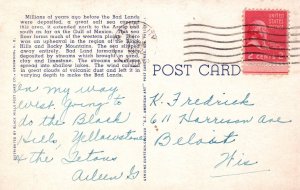 Millions of years ago before the Bad Lands
were deposited, a great salt sea covered
this area, extended north to the Arctic and
south as far as the Gulf of Mexico. That sea
floor forms much of the western plains. There
was an upheaval in the region of the Black
Hills and Rocky Mountains. The sea slipped
away entirely. Bad Land formations were
deposited by floods which brought in sand,
clay and limestone. The streams sometimes
spread into shallow lakes. The wind carried
in great clouds of volcanic dust and left it in
varying depth to make the Bad Lands.
POST CARD
UNITED STATES
2 CENTS 2
On my way
West going to
do the Black
Hills, Yellowstone
& the Tetons
Aileen G
K. Fredrick
611 Harrison Ave
Beloit
Wis